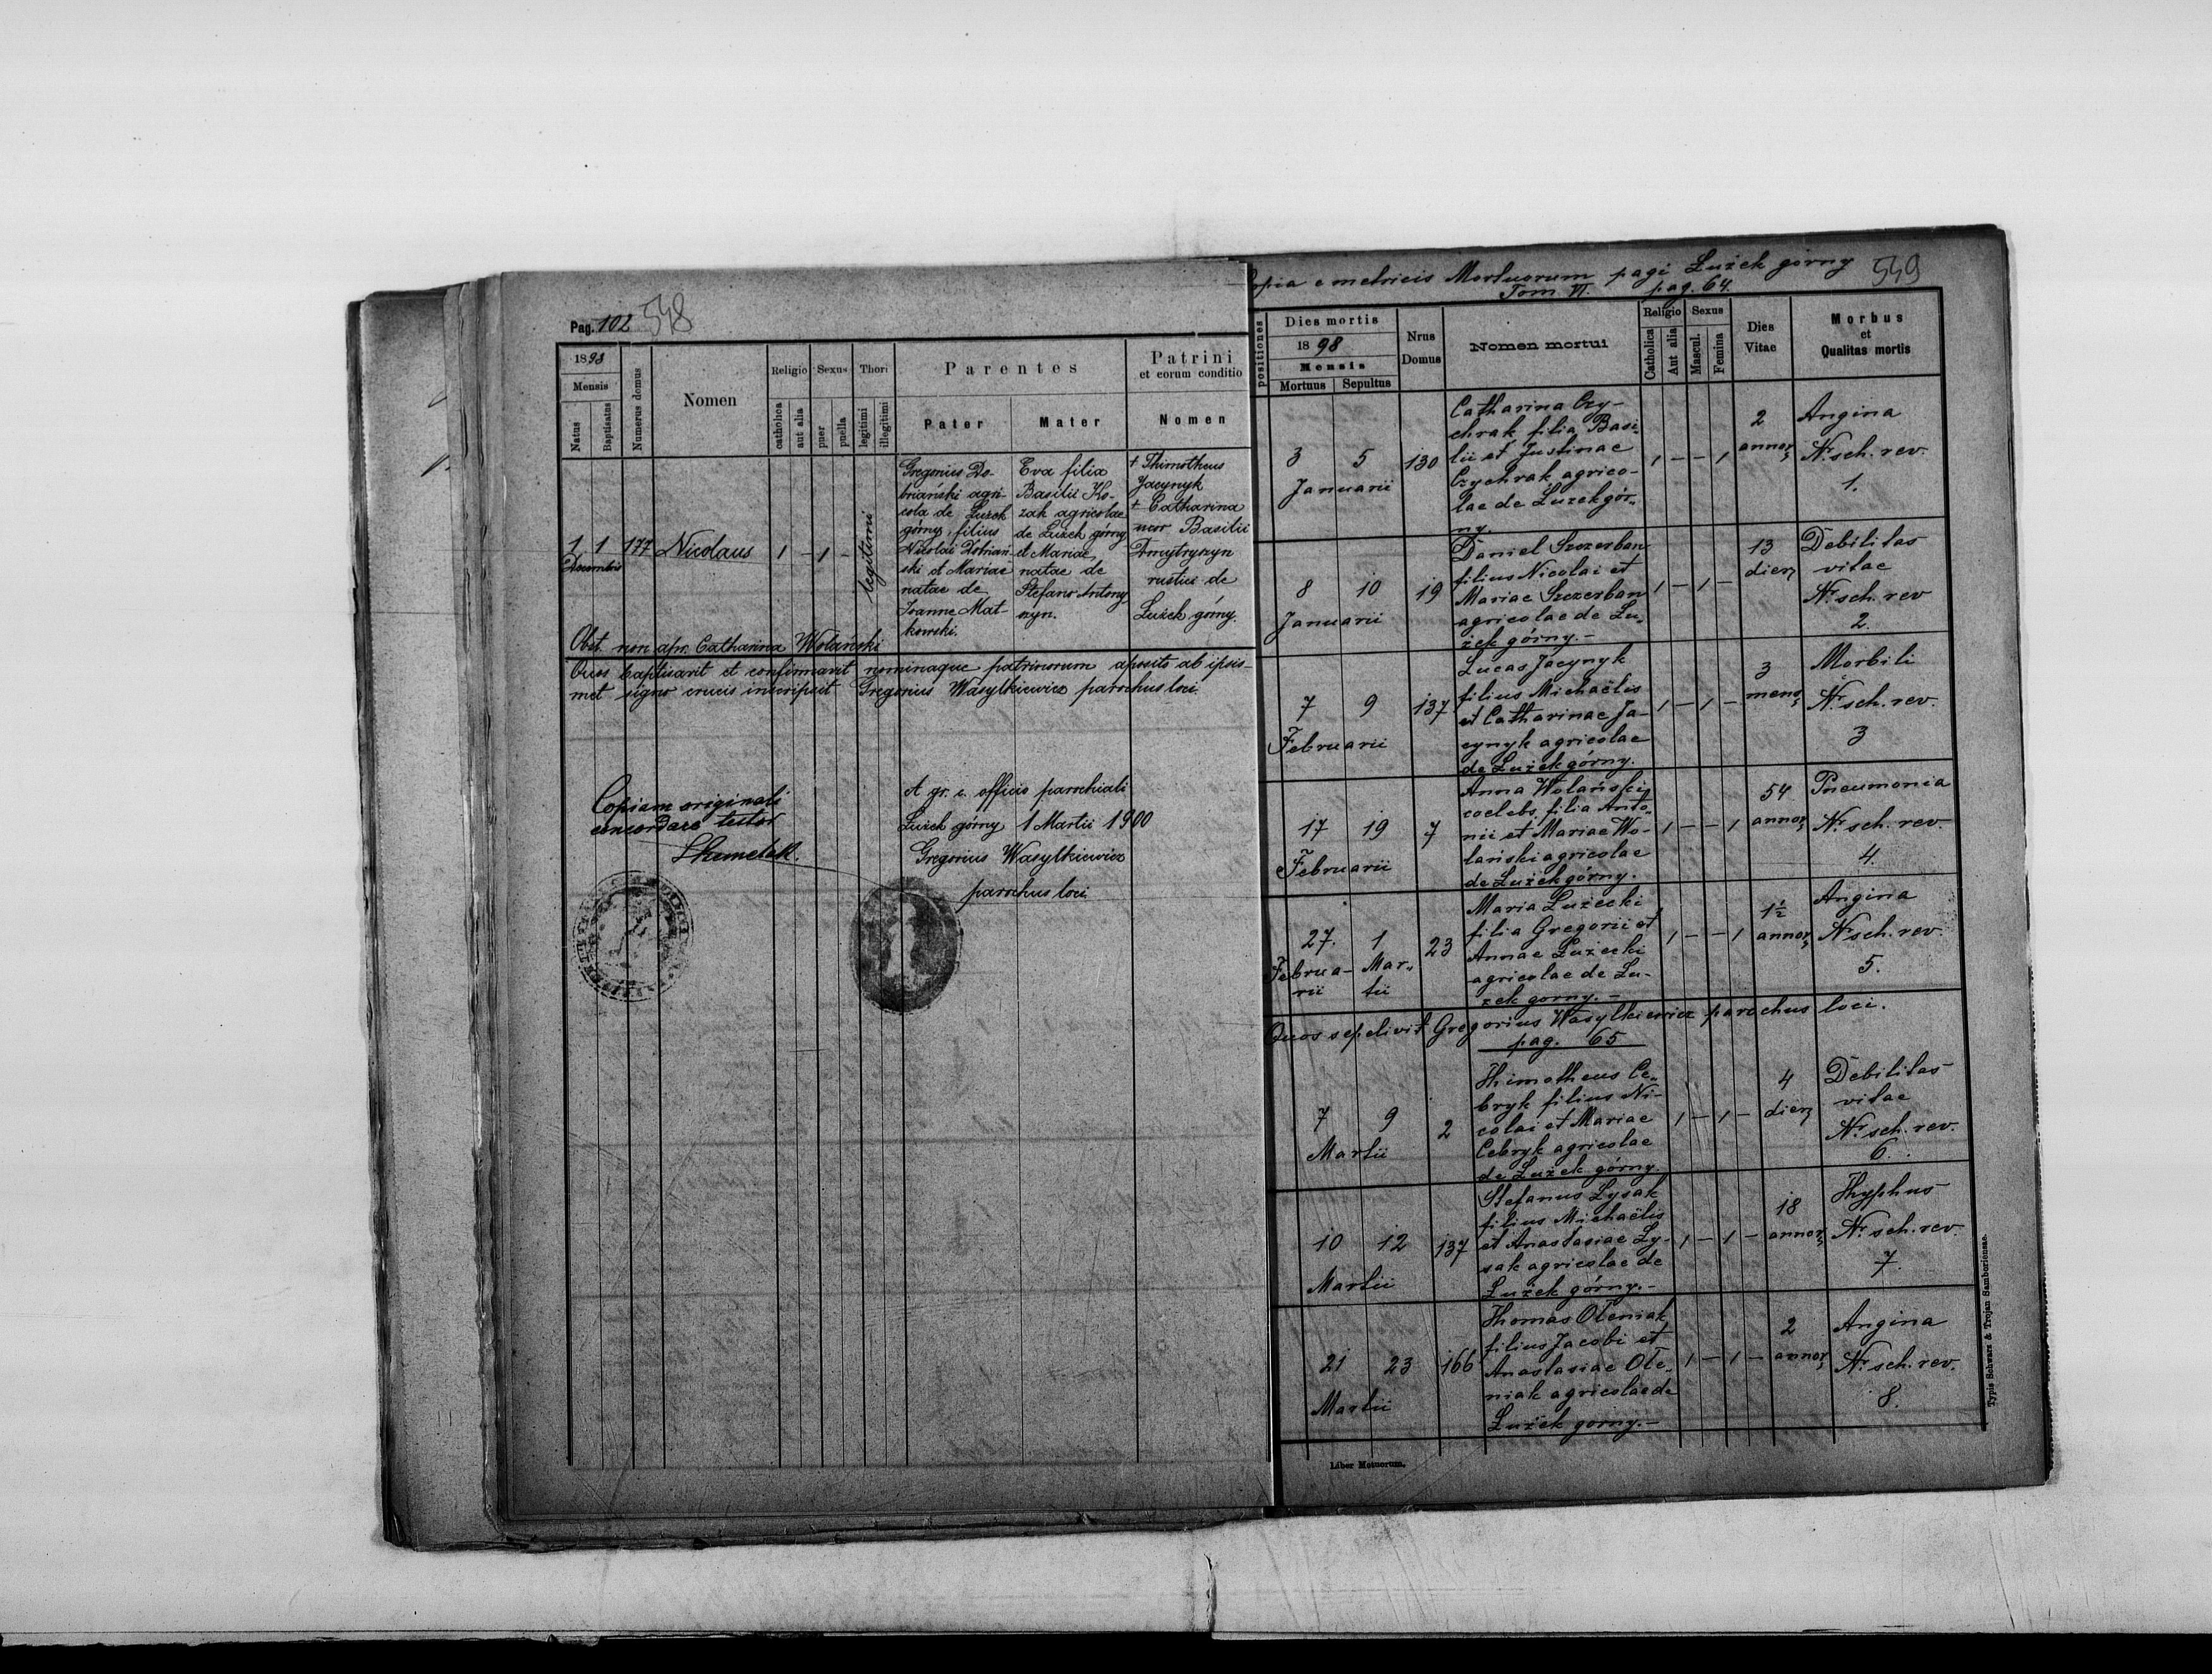 Pag. 102 548
1898
Mensis
Natus
Baptisatus
Numerus domus
Nomen
Religio
catholica
aut alia
Sexus
puer
puella
Thori
legitimi
illegitimi
Parentes
Pater
Mater
Patrini
et eorum conditio
Nomen
1 1 177 Nicolaus 1 - 1 -
Decembris
legitimi
Gregorius Do-
briański agri-
cola de Łużek
górny, filius
Nicolai Dobriań-
ski et Mariae
natae de
Joanne Mat-
kowski.
Eva filia
Basilii Ko-
zak agricolae
de Łużek górny
et Mariae
natae de
Stefano Antony-
szyn.
+ Thimotheus
Jacynyk
+ Catharina
uxor Basilii
Dmytryszyn
rustici de
Łużek górny.
Obst. non apr. Catharina Wolański
Quos baptisavit et confirmavit nominaque patrinorum aposito ab ipsis-
met signo crucis inscripsit Gregorius Wasylkiewicz parochus loci.
Copiam originali
concordare testor
A gr. c. officio parochiali
Łużek górny 1 Martii 1900
Gregorius Wasylkiewicz
parochus loci
opia e metricis Mortuorum pagi Łużek górny 549
Tom VI. pag. 64.
positiones
Dies mortis
1898
Mensis
Mortuus Sepultus
Nrus
Domus
Nomen mortui
Religio
Catholica
Aut alia
Sexus
Mascul.
Femina
Dies
Vitae
Morbus
et
Qualitas mortis
3 5 130
Januarii
Catharina Czy-
chrak filia Basi-
lii et Justinae
Czychrak agrico-
lae de Łużek gór-
ny.
1 - - 1
2
annor
Angina
Nr. sch. rev.
1.
8 10 19
Januarii
Daniel Szczerban
filius Nicolai et
Mariae Szczerban
agricolae de Łu-
żek górny. -
1 - 1 -
13
dier
Debilitas
vitae
Nr. sch. rev
2.
7 9 137
Februarii
Lucas Jacynyk
filius Michaëlis
et Catharinae Ja-
cynyk agricolae
de Łużek górny.
1 - 1 -
3
mens
Morbili
Nr. sch. rev.
3
17 19 7
Februarii
Anna Wolański
coelebs, filia Anto-
nii et Mariae Wo-
lański agricolae
de Łużek górny.
1 - - 1
54
annor
Pneumonia
Nr. sch. rev.
4.
27. 1 23
Februa- Mar-
rii tii
Maria Łużecki
filia Gregorii et
Annae Łużecki
agricolae de Łu-
żek gorny. -
1 - - 1
1½
annor
Angina
Nr. sch. rev.
5.
Quos sepelivit Gregorius Wasylkiewicz parochus loci.
pag. 65
7 9 2
Martii
Thimotheus Ce-
bryk filius Ni-
colai et Mariae
Cebryk agricolae
de Łużek górny.
1 - 1 -
4
dier
Debilitas
vitae
Nr. sch. rev.
6.
10 12 137
Martii
Stefanus Łysak
filius Michaëlis
et Anastasiae Ły-
sak agricolae de
Łużek górny. -
1 - 1 -
18
annor
Thyphus
Nr. sch. rev.
7.
21 23 166
Martii
Thomas Oleniak
filius Jacobi et
Anastasiae Ole-
niak agricolae de
Łużek gorny. -
1 - 1 -
2
annor
Angina
Nr. sch. rev.
8.
Liber Motuorum.
Typis Schwarz & Trojan Samboriensae.